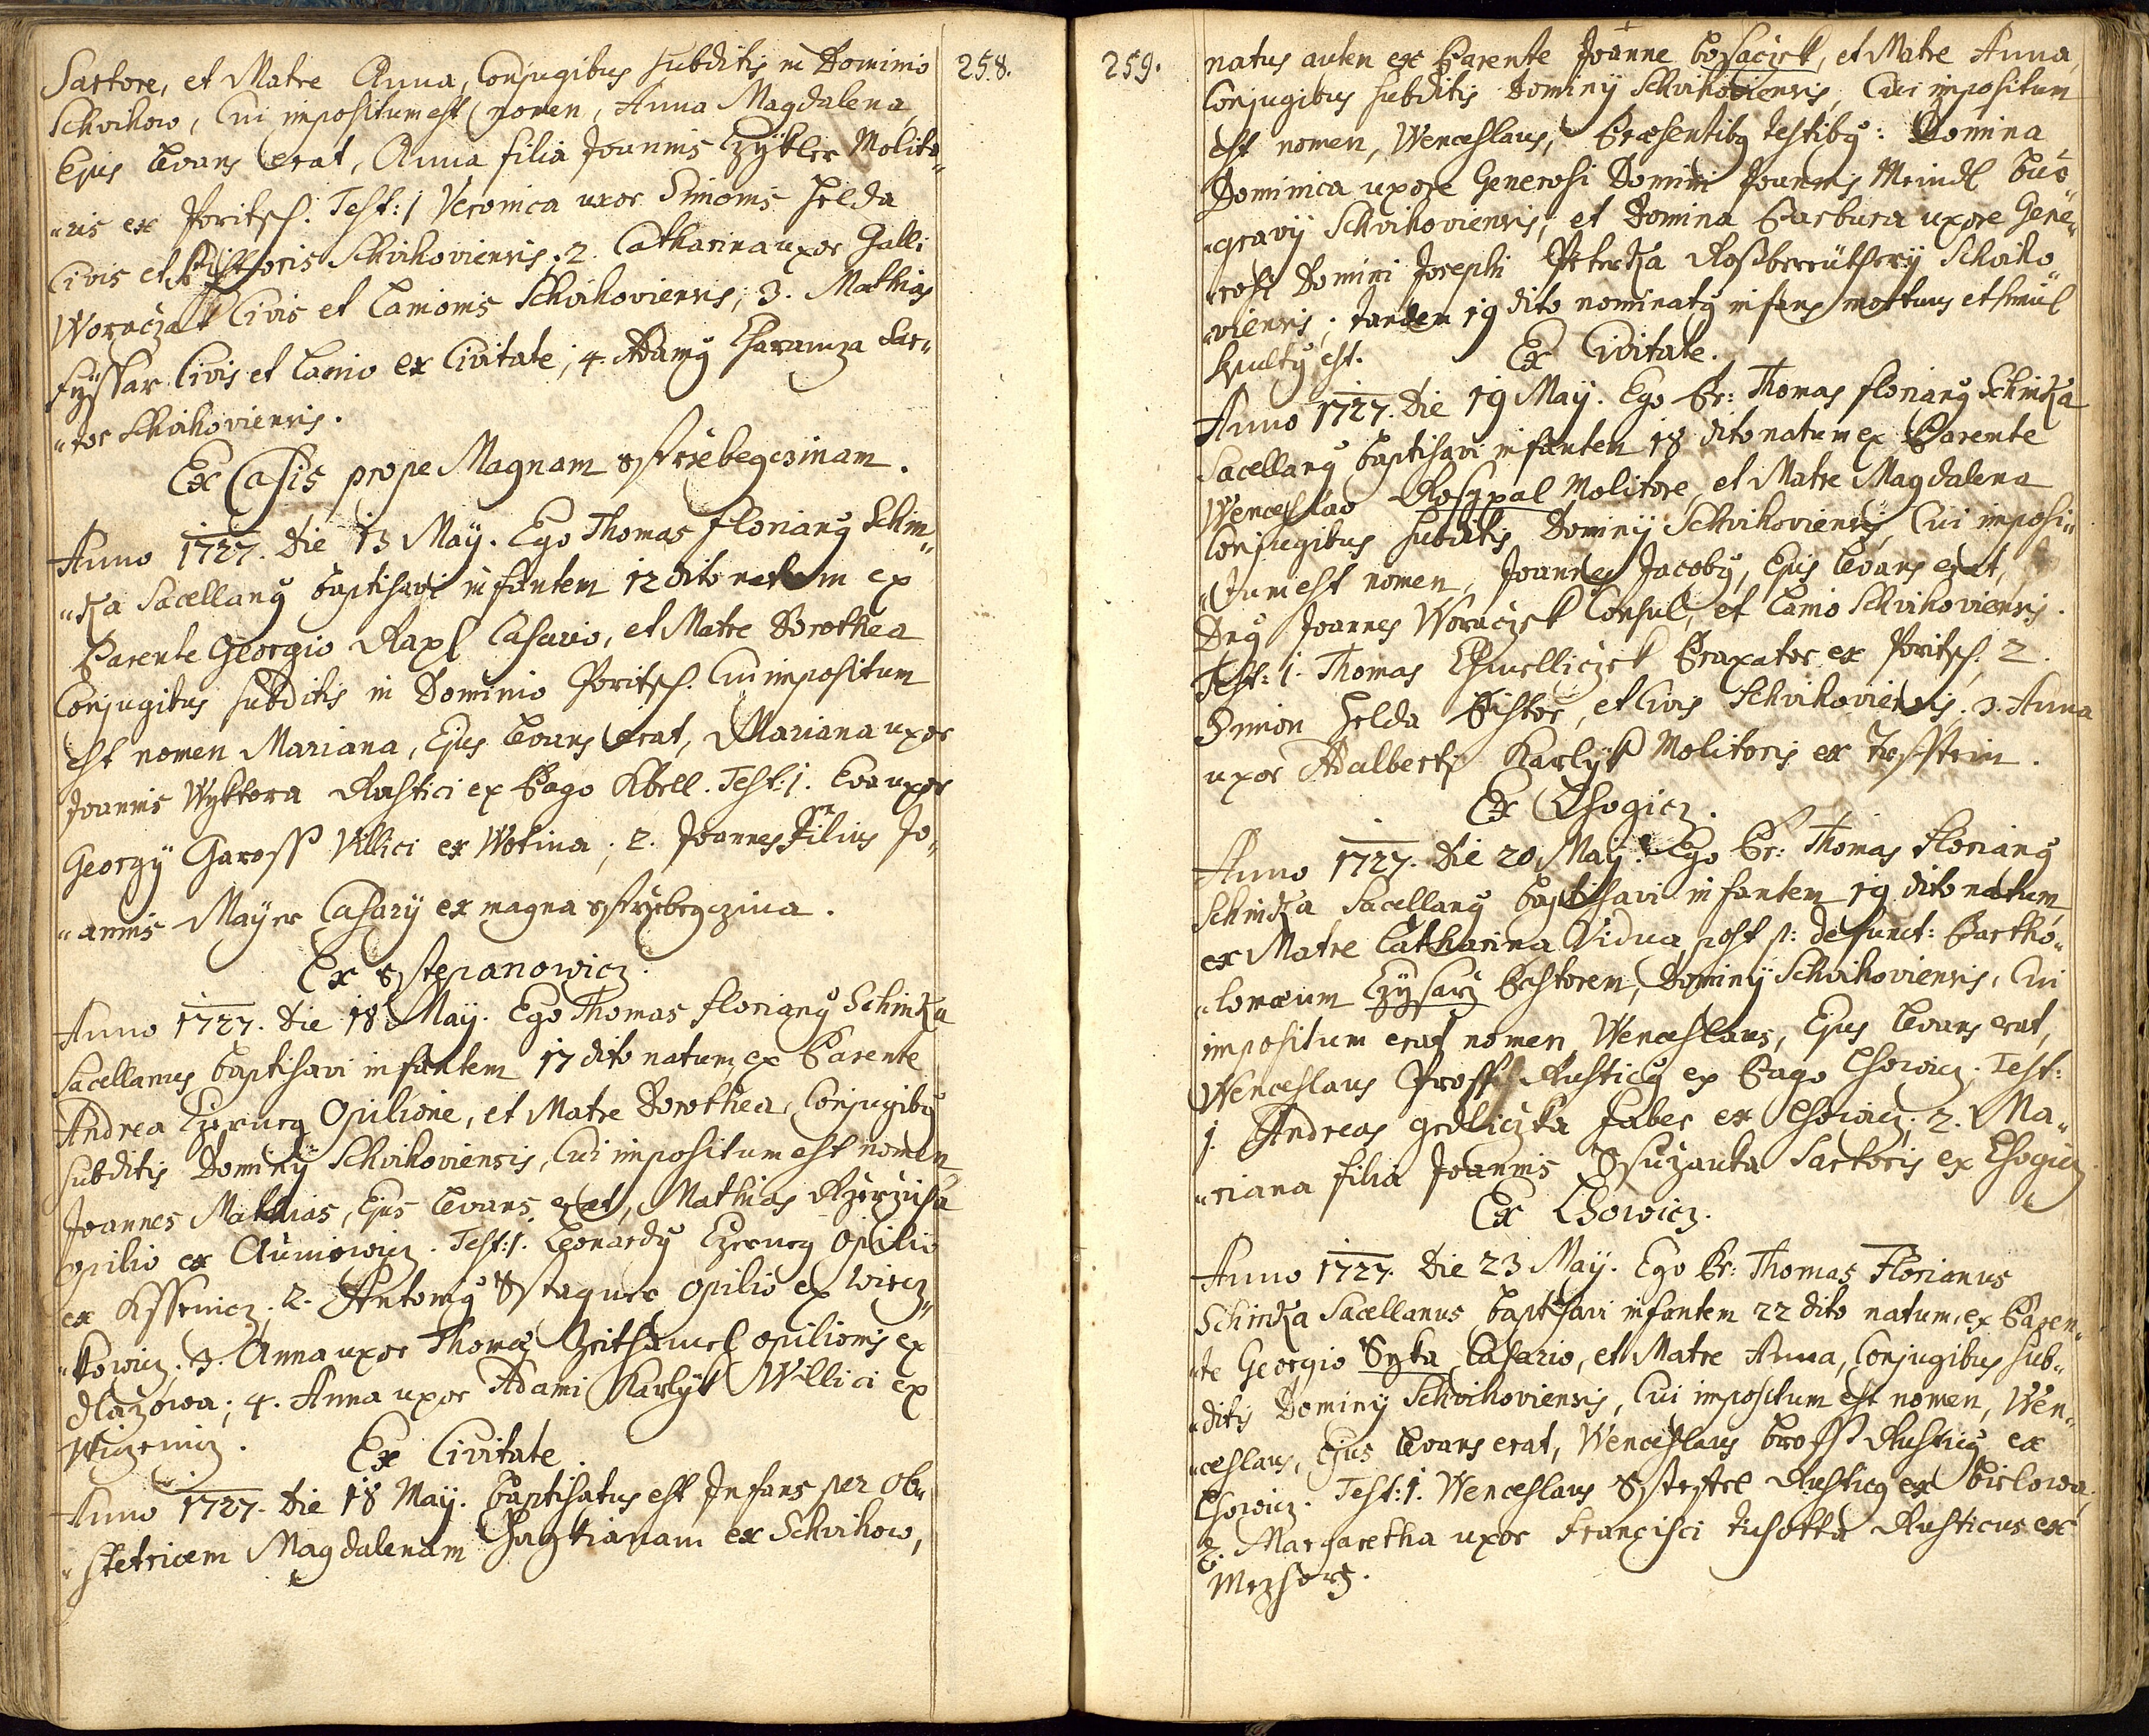 258.
Sartore, et Matre Anna, Conjugibus subditis in Dominio
Schvihow, Cui impositum est nomen, Anna Magdalena,
Ejus levans erat, Anna filia Joannis Molito„
„ris ex Poritsch. Test: 1 Veronica uxor Simonis Helda
Civis et Pistoris Schvihoviensis; 2. Catharina uxor Galli
Woraczek Civis et Lanionis Schvihoviensis; 3. Mathias
Civis et Lanio ex Civitate; 4. Adamus Charamza Sar„
„tor Schvihoviensis.
Ex Casis prope Magnam
Anno 1727. Die 13 May. Ego Thomas Florianus Schin„
„ka Sacellanus baptisavi infantem 12 dito natam ex
Parente Georgio Rapl Casario, et Matre Dorothea
Conjugibus subditis in Dominio Poritsch. Cui impositum
est nomen Mariana, Ejus levans erat, Mariana uxor
Joannis Wyktora Rustici ex Pago Kbell. Test: 1. Eva uxor
Georgÿ Gaross Villici ex Wotina; 2. Joannes Filius Jo„
„annis Mayer Casarÿ ex magna
Ex Sstepanowicz.
Anno 1727. Die 18 May. Ego Thomas Florianus Schinka
Sacellanus baptisavi infantem 17 dito natum, ex Parente
Andrea Czerney Opilione, et Matre Dorothea, Conjugibus
subditis Dominÿ Schvihoviensis, Cui impositum est nomen
Joannes Mathias, Ejus levans erat, Mathias
opilio ex Auniowicz. Test: 1. Leonardus Czerney Opilio
ex Kssenicz; 2. Antonius Sstagner opilio ex Wircz„
„kowicz; 3. Anna uxor Thomæ opilionis ex
; 4. Anna uxor Adami Karlyk Willici ex
Wiczeniz.
Ex Civitate.
Anno 1727. Die 18 May. baptisatus est Infans per Ob„
„stetricem Magdalenam ex Schvihow,
259.
natus autem ex Parente Joanne Bosaczek, et Matre Anna,
Conjugibus subditis Dominÿ Schvihoviensis, Cui impositum
est nomen, Wenceslaus, Præsentibus testibus: Domina
Dominica uxore Generosi Domini Joannis Meindl Bur„
„gravÿ Schvihoviensis, et Domina Barbara uxore Gene„
„rosi Domini Josephi Peterka Schviho„
„viensis; tandem 19 dito nominatus infans mortuus et simul
sepultus est.
Ex Civitate.
Anno 1727. Die 19 May. Ego Pr: Thomas Florianus Schinka
Sacellanus baptisavi infantem 18 dito natum ex Parente
Wenceslao Rosypal Molitore, et Matre Magdalena
Conjugibus subditis Dominÿ Schvihoviensis, Cui imposi„
„tum est nomen, Joannes Jacobus, Ejus levans erat,
Dnus Joannes Woraczek Consul, et Lanio Schvihoviensis.
Test: 1. Thomas Chmelliczek Braxator ex Poritsch. 2.
Simon Helda Pistor, et Civis Schvihoviensis; 3. Anna
uxor Adalberti Karlyk Molitoris ex
Ex Lhowicz.
Anno 1727. Die 20 May. Ego Pr: Thomas Florianus
Schinka Sacellanus baptisavi infantem 19 dito natum,
ex Matre Catharina Vidua, post p: defunct: Bartho„
„lomæum Czysarz Pastorem, Dominÿ Schvihoviensis, Cui
impositum erat nomen Wenceslaus, Ejus levans erat,
Wenceslaus Pross Rusticus ex Pago Lhowicz. Test:
1. Andreas Gedliczka Faber ex Lhowicz; 2. Ma„
„riana filia Joannis Sartoris ex Lhowicz.
Ex Lhowicz.
Anno 1727. Die 23 May. Ego Pr: Thomas Florianus
Schinka Sacellanus, baptisavi infantem 22 dito natum, ex Paren„
„te Georgio Syka Casario, et Matre Anna, Conjugibus sub„
„ditis Dominÿ Schvihoviensis, Cui impositum est nomen, Wen„
„ceslaus, Ejus levans erat, Wenceslaus Bross Rusticus ex
Lhowicz. Test: 1. Wenceslaus Rusticus ex Bielowa;
2. Margaretha uxor Francisci Rusticus ex
Mezhorz.